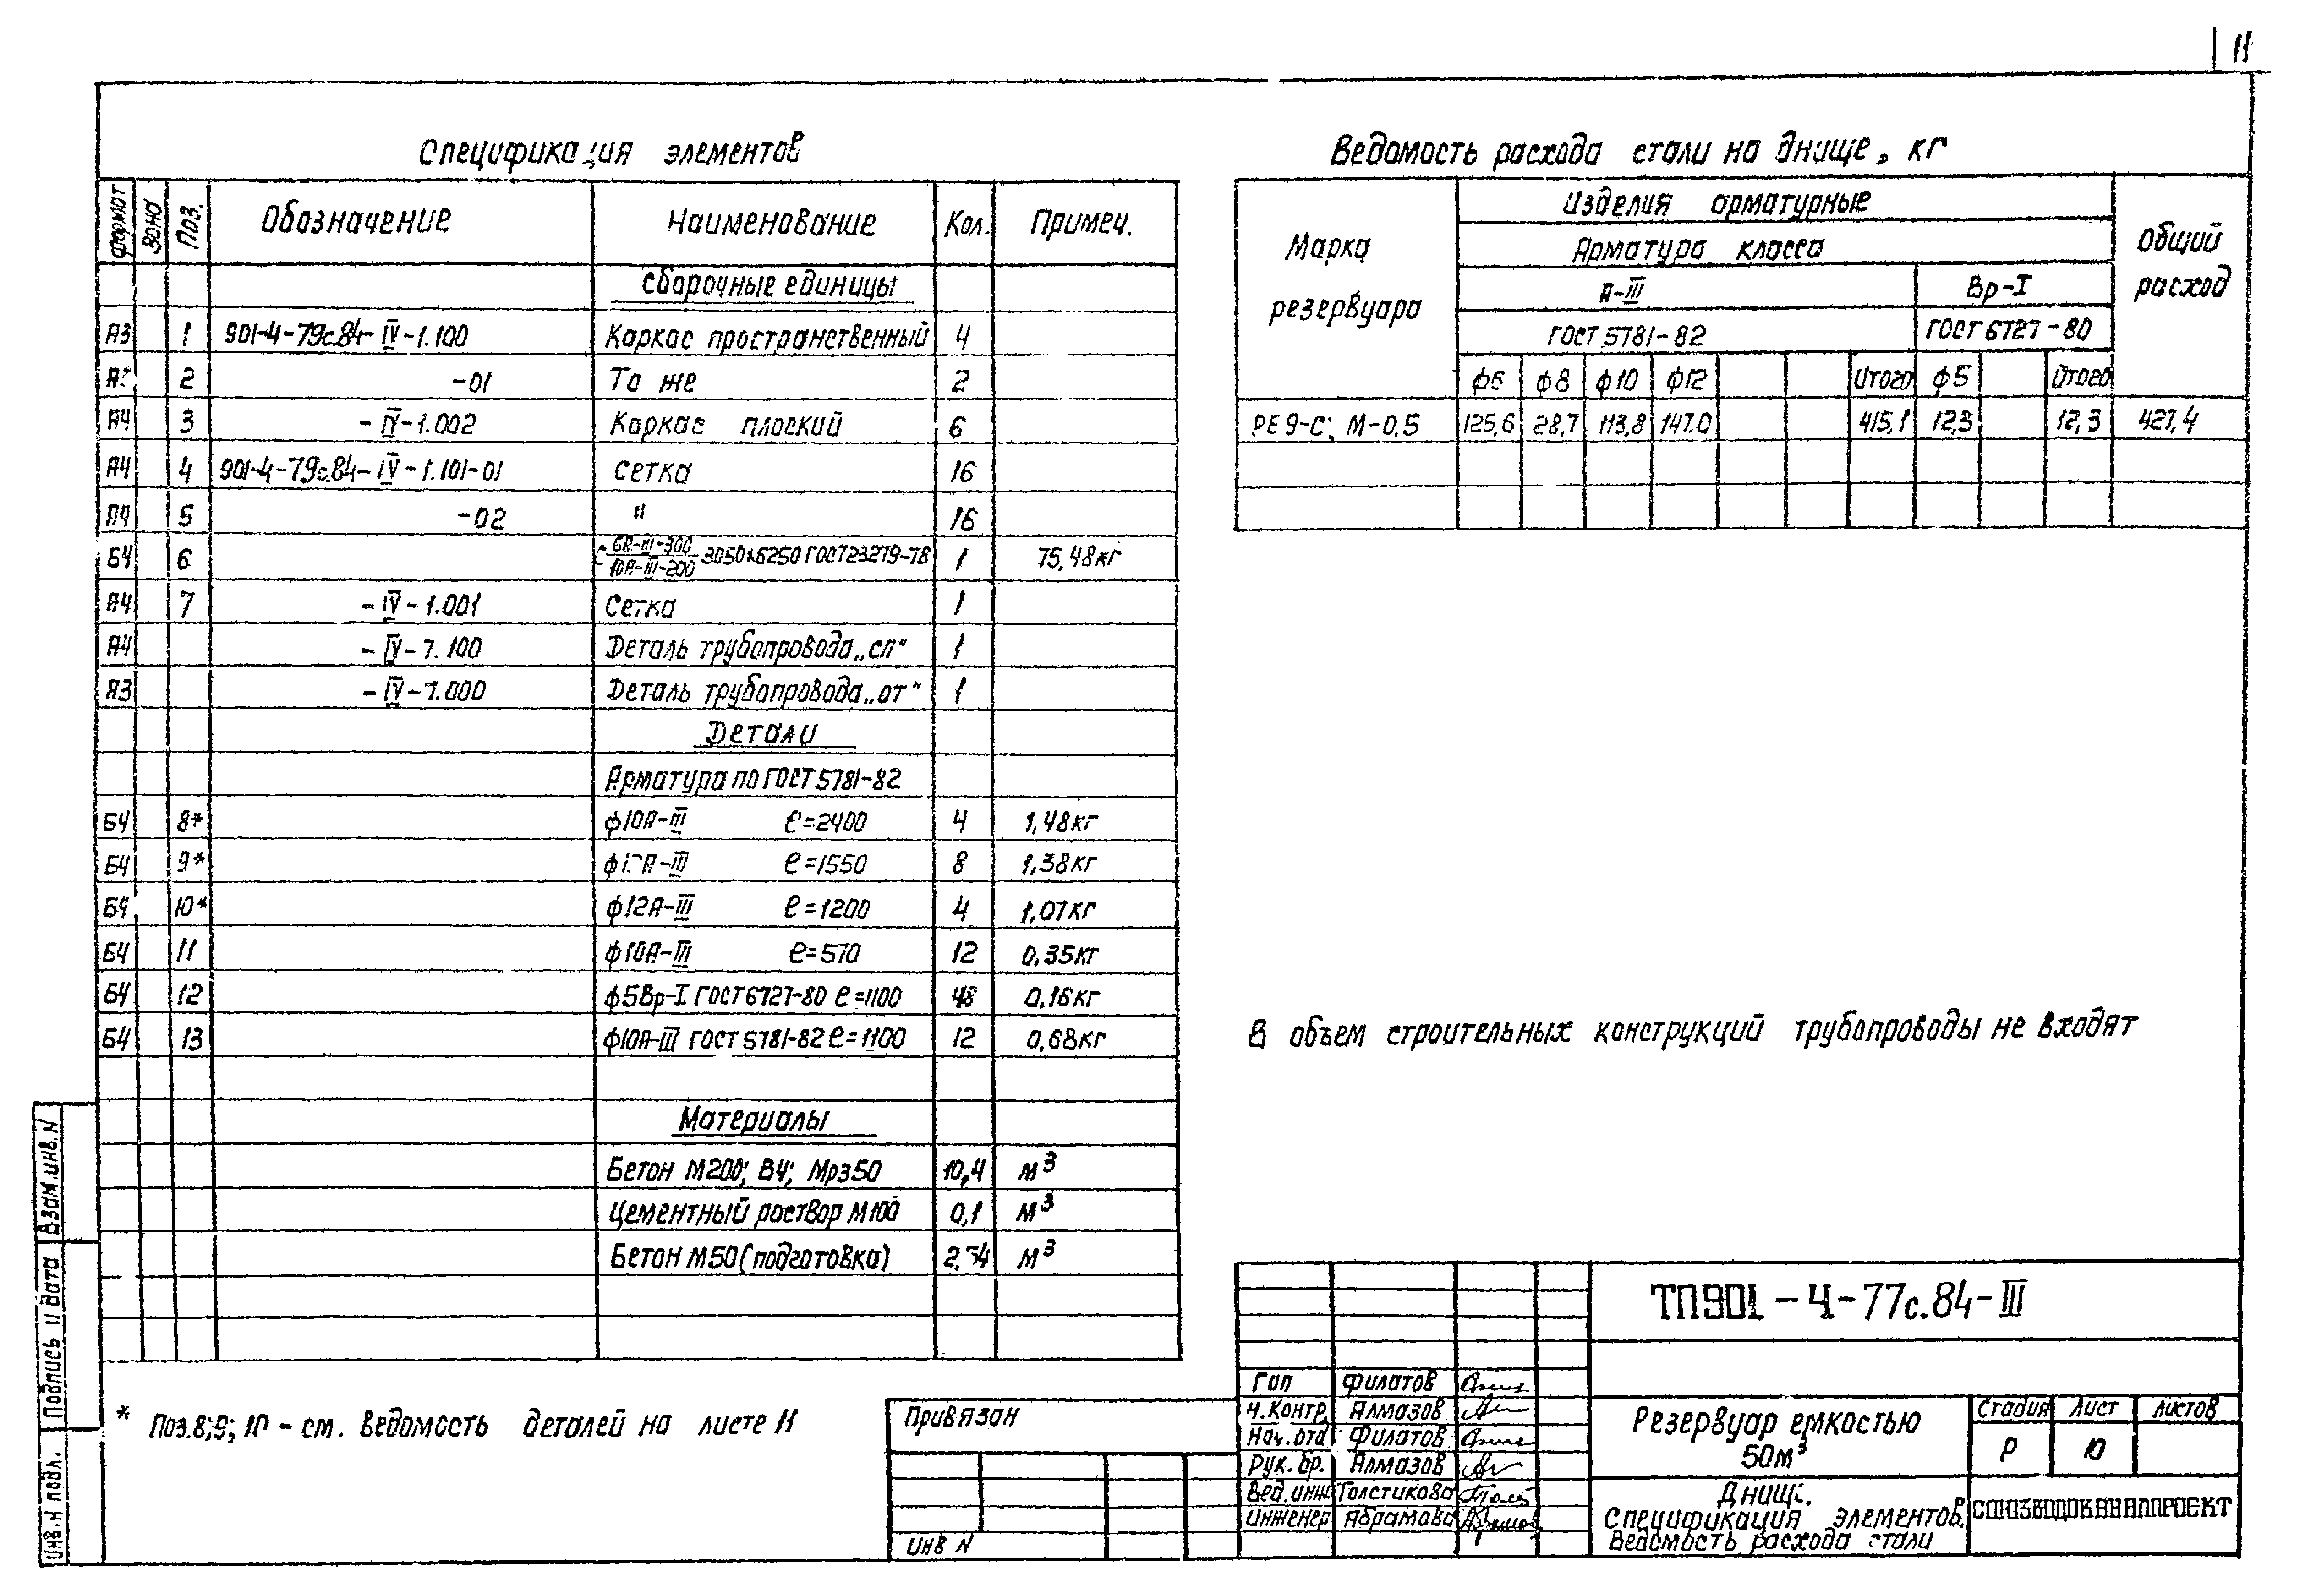 11
Спецификация элементов
Формат Зона Поз. Обозначение Наименование Кол. Примеч.
Сборочные единицы
А3 1 901-4-79с.84-IV-1.100 Каркас пространственный 4
2 -01 То же 2
А4 3 -IV-1.002 Каркас плоский 6
А4 4 901-4-79с.84-IV-1.101-01 сетка 16
А4 5 -02 " 16
Б4 6 С 6А-III-300/10А-III-200 3050х6250 ГОСТ23279-78 1 75,48кг
А4 7 -IV-1.001 Сетка 1
А4 -IV-7.100 Деталь трубопровода „сп" 1
А3 -IV-7.000 Деталь трубопровода „от" 1
Детали
Арматура по ГОСТ 5781-82
Б4 8* ф10А-III ℓ=2400 4 1,48кг
Б4 9* ф12А-III ℓ=1550 8 1,38кг
Б4 10* ф12А-III ℓ=1200 4 1,07кг
Б4 11 ф10А-III ℓ=570 12 0,35кг
Б4 12 ф5Вр-I ГОСТ6727-80 ℓ=1100 48 0,16кг
Б4 13 ф10А-III ГОСТ 5781-82 ℓ=1100 12 0,68кг
Материалы
Бетон М200; В4; Мрз50 10,4 м³
Цементный раствор М100 0,1 м³
Бетон М50 (подготовка) м³
* Поз.8;9; 10 - см. Ведомость деталей на листе 11
Ведомость расхода стали на днище, кг
Марка резервуара Изделия арматурные Общий расход
Арматура класса
А-III Вр-I
ГОСТ 5781-82 ГОСТ 6727-80
ф6 ф8 ф10 ф12 Итого ф5 Итого
РЕ9-С; М-0,5 125,6 28,7 113,8 147,0 415,1 12,3 12,3 427,4
В объем строительных конструкций трубопроводы не входят
Взам.инв.N
Подпись и дата
Инв.N подл.
Привязан
Инв N
ТП901-4-77с.84-III
Гип Филатов
Н.Контр. Алмазов
Нач.отд Филатов
Рук.бр. Алмазов
Вед.инж Толстикова
Инженер Абрамова
Резервуар емкостью
50м³
Стадия Лист Листов
Р 10
Днище.
Спецификация элементов.
Ведомость расхода стали
СОЮЗВОДОКАНАЛПРОЕКТ